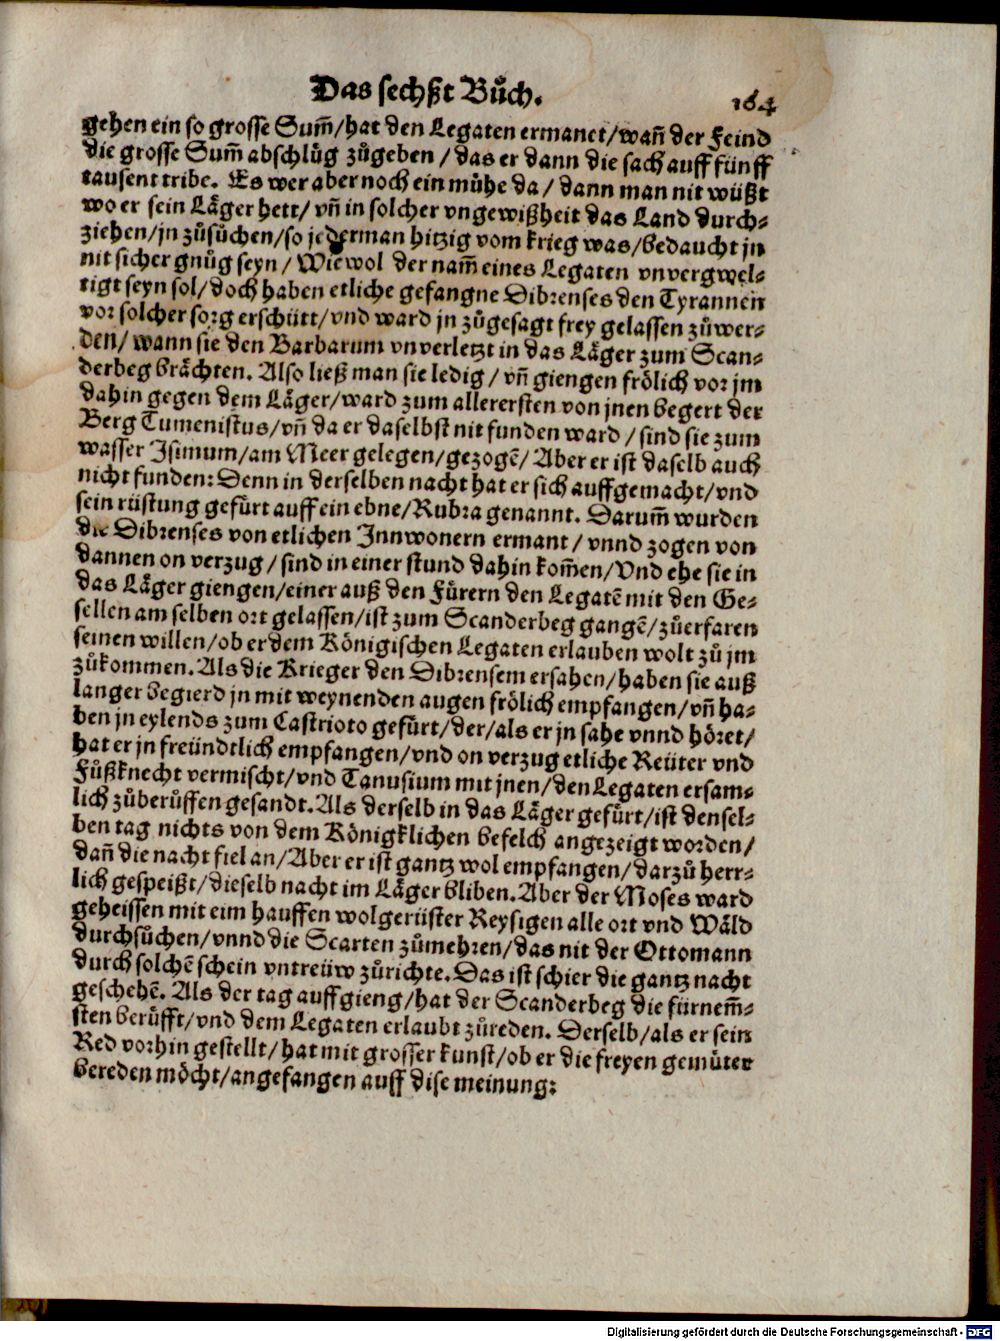 Das sechßt Bůch.
164
gehen ein so grosse Sum̃/hat den Legaten ermanet/wañ der Feind
die grosse Sum̃ abschlůg zůgeben / das er dann die sach auff fünff
tausent tribe. Es wer aber noch ein mühe da / dann man nit wüßt
wo er sein Läger hett/ vñ in solcher vngewißheit das Land durch-
ziehen/jn zůsůchen/so jederman hitzig vom krieg was/bedaucht jn
nit sicher gnůg seyn / Wiewol der nam̃ eines Legaten vnvergwel-
tigt seyn sol/doch haben etliche gefangne Dibrenses den Tyrannen
vor solcher sorg erschütt/vnd ward jn zůgesagt frey gelassen zůwer-
den/ wann sie den Barbarum vnverletzt in das Läger zum Scan-
derbeg brächten. Also ließ man sie ledig / vñ giengen frölich vor jm
dahin gegen dem Läger/ward zum allerersten von jnen begert der
Berg Tumenistus/vñ da er daselbst nit funden ward / sind sie zum
wasser Isimum/am Meer gelegen/gezogē/ Aber er ist daselb auch
nicht funden: Denn in derselben nacht hat er sich auffgemacht/vnd
sein rüstung gefürt auff ein ebne/Rubra genannt. Darum̃ wurden
die Dibrenses von etlichen Innwonern ermant / vnnd zogen von
dannen on verzug / sind in einer stund dahin kom̃en/Vnd ehe sie in
das Läger giengen/einer auß den Fürern den Legatē mit den Ge-
sellen am selben ort gelassen/ist zum Scanderbeg gangē/zůerfaren
seinen willen/ob er dem Königischen Legaten erlauben wolt zů jm
zůkommen. Als die Krieger den Dibrensem ersahen/haben sie auß
langer begierd jn mit weynenden augen frölich empfangen/vñ ha-
ben jn eylends zum Castrioto gefürt/der/als er jn sahe vnnd höret/
hat er jn freündtlich empfangen/vnd on verzug etliche Reüter vnd
Fůßknecht vermischt/vnd Tanusium mit jnen/den Legaten ersam-
lich zůberůffen gesandt. Als derselb in das Läger gefürt/ist densel-
ben tag nichts von dem Königklichen befelch angezeigt worden/
dañ die nacht fiel an/Aber er ist gantz wol empfangen/darzů herr-
lich gespeißt/dieselb nacht im Läger bliben. Aber der Moses ward
geheissen mit eim hauffen wolgerüster Reysigen alle ort vnd Wäld
durchsůchen/vnnd die Scarten zůmehren/das nit der Ottomann
durch solchē schein vntreüw zůrichte. Das ist schier die gantz nacht
geschehē. Als der tag auffgieng/hat der Scanderbeg die fürnem̃-
sten berůfft/vnd dem Legaten erlaubt zůreden. Derselb/als er sein
Red vorhin gestellt/hat mit grosser kunst/ob er die freyen gemüter
bereden möcht/angefangen auff dise meinung:
Digitalisierung gefördert durch die Deutsche Forschungsgemeinschaft - DFG